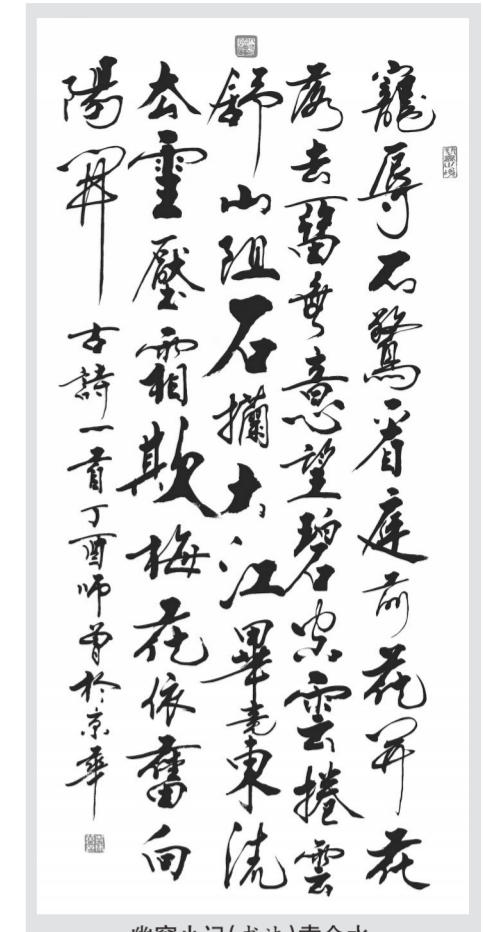 寵辱不驚看庭前花開花
落去留無意望碧空雲捲雲
舒山阻石攔大江畢竟東流
去雪壓霜欺梅花依舊向
陽開 古詩一首丁酉師曾於京華
幽窗小记(书法)